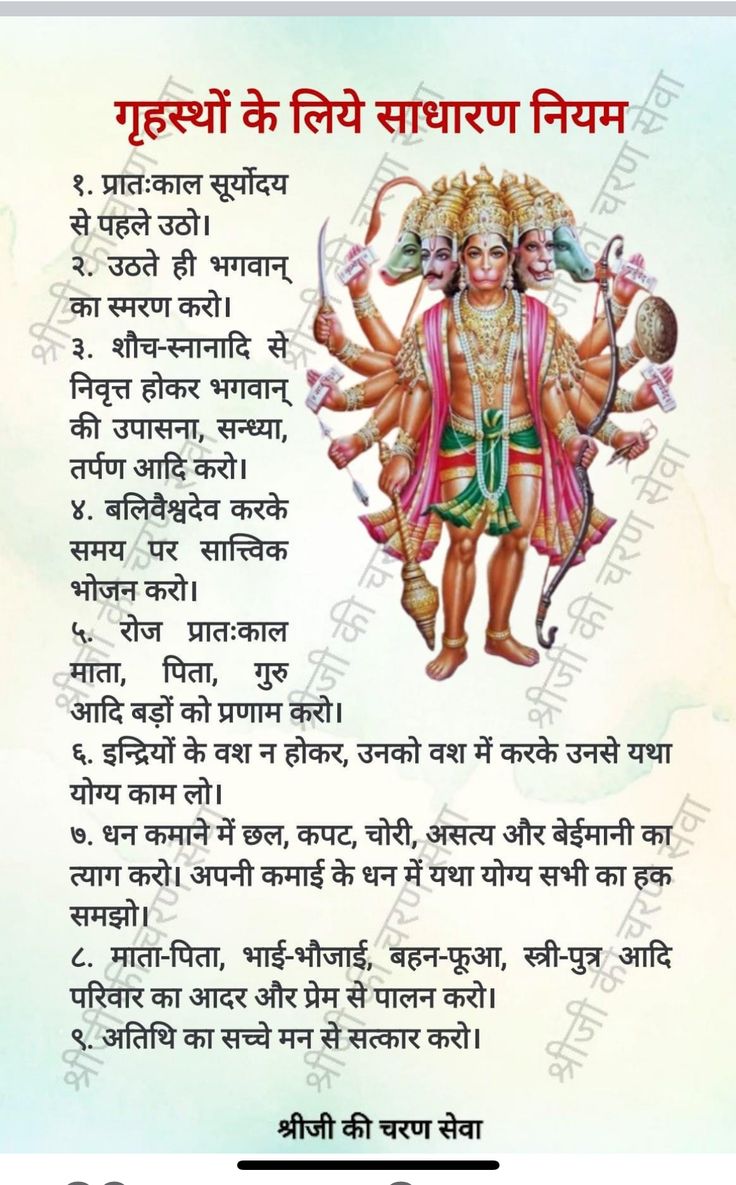 गृहस्थों के लिये साधारण नियम
१. प्रातःकाल सूर्योदय
से पहले उठो।
२. उठते ही भगवान्
का स्मरण करो।
३. शौच-स्नानादि से
निवृत्त होकर भगवान्
की उपासना, सन्ध्या,
तर्पण आदि करो।
४. बलिवैश्वदेव करके
समय पर सात्त्विक
भोजन करो।
५. रोज प्रातःकाल
माता, पिता, गुरु
आदि बड़ों को प्रणाम करो।
६. इन्द्रियों के वश न होकर, उनको वश में करके उनसे यथा
योग्य काम लो।
७. धन कमाने में छल, कपट, चोरी, असत्य और बेईमानी का
त्याग करो। अपनी कमाई के धन में यथा योग्य सभी का हक
समझो।
८. माता-पिता, भाई-भौजाई, बहन-फूआ, स्त्री-पुत्र आदि
परिवार का आदर और प्रेम से पालन करो।
९. अतिथि का सच्चे मन से सत्कार करो।
श्रीजी की चरण सेवा